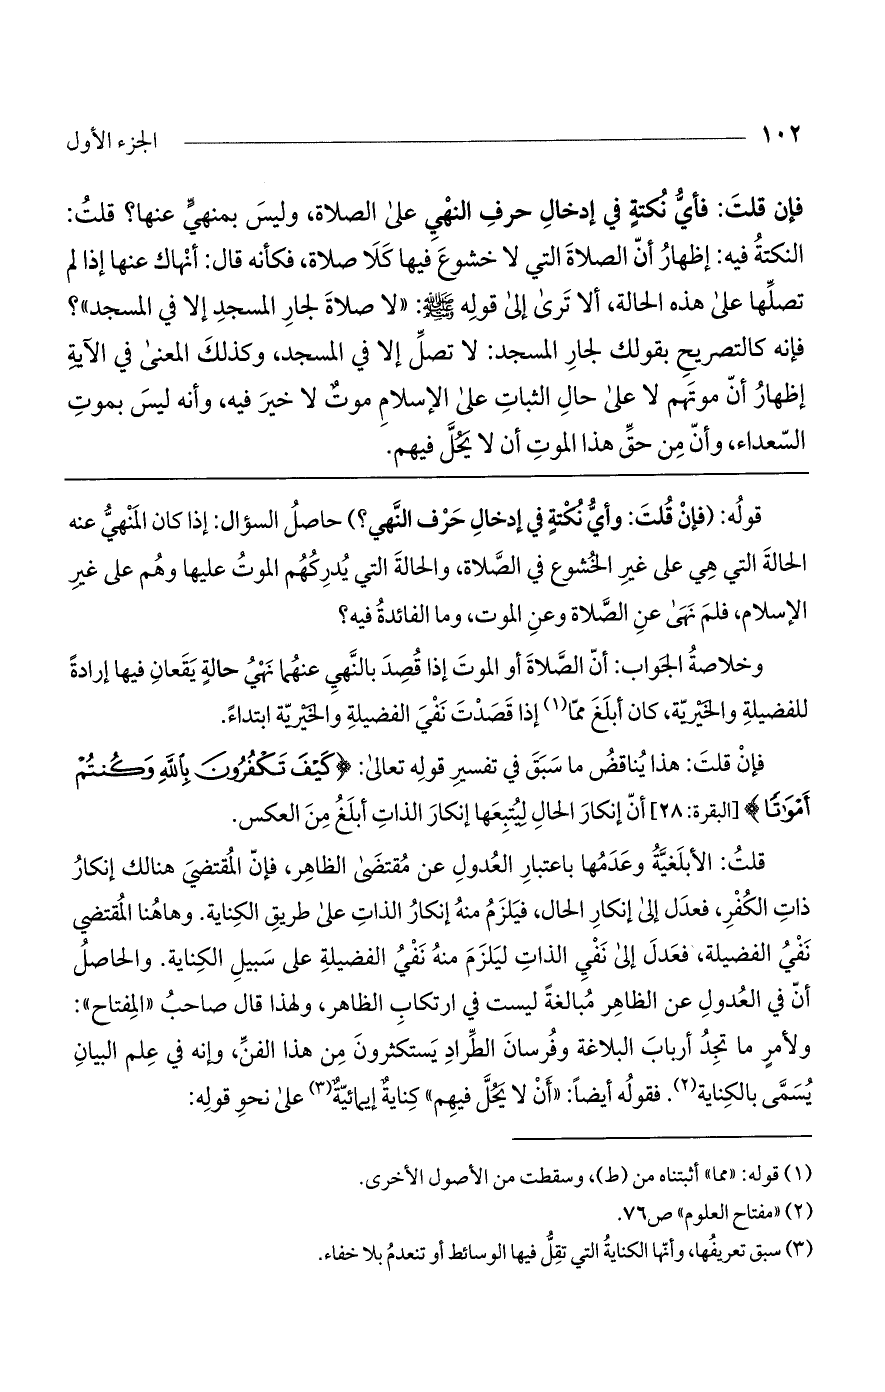 ١٠٢ الجزء الأول
فإن قلتَ: فأيُّ نُكتةٍ في إدخالِ حرفِ النهْيِ علىٰ الصلاة، وليسَ بمنهيٍّ عنها؟ قلتُ:
النكتةُ فيه: إظهارُ أنّ الصلاةَ التي لا خشوعَ فيها كَلَا صلاة، فكأنه قال: أنْهاك عنها إذا لم
تصلِّها علىٰ هذه الحالة، ألا تَرىٰ إلىٰ قولِه ﷺ: «لا صلاةَ لجارِ المسجدِ إلا في المسجد»؟
فإنه كالتصريحِ بقولك لجارِ المسجد: لا تصلِّ إلا في المسجد، وكذلكَ المعنىٰ في الآيةِ
إظهارُ أنّ موتَهم لا علىٰ حالِ الثباتِ علىٰ الإسلامِ موتٌ لا خيرَ فيه، وأنه ليسَ بموتِ
السّعداء، وأنّ مِن حقِّ هذا الموتِ أن لا يَحُلَّ فيهم.
قولُه: (فإنْ قُلتَ: وأيُّ نُكْتةٍ في إدخالِ حَرْف النَّهي؟) حاصلُ السؤال: إذا كان المَنْهيُّ عنه
الحالةَ التي هِي على غيرِ الخُشوع في الصَّلاة، والحالةَ التي يُدرِكُهُم الموتُ عليها وهُم على غيرِ
الإسلام، فلمَ نَهَىٰ عنِ الصَّلاة وعنِ الموت، وما الفائدةُ فيه؟
وخلاصةُ الجَواب: أنّ الصَّلاةَ أو الموتَ إذا قُصِدَ بالنَّهيِ عنهُما نَهْيُ حالةٍ يَقَعانِ فيها إرادةً
للفضيلةِ والخَيْريّة، كان أبلَغَ ممّا(١) إذا قَصَدْتَ نَفْيَ الفضيلةِ والخَيْريّة ابتداءً.
فإنْ قلتَ: هذا يُناقضُ ما سَبَقَ في تفسيرِ قولِه تعالىٰ: ﴿كَيْفَ تَكْفُرُونَ بِاللَّهِ وَكُنتُمْ
أَمْوَاتًا﴾ [البقرة: ٢٨] أنّ إنكارَ الحالِ لِيُتبِعَها إنكارَ الذاتِ أبلَغُ مِنَ العكس.
قلتُ: الأبلَغيَّةُ وعَدَمُها باعتبارِ العُدولِ عن مُقتضَىٰ الظاهِر، فإنّ المُقتضيَ هنالك إنكارُ
ذاتِ الكُفْرِ، فعدَل إلىٰ إنكارِ الحال، فيَلزَمُ منهُ إنكارُ الذاتِ علىٰ طريقِ الكِناية. وهاهُنا المُقتضي
نَفْيُ الفضيلة، فعَدَلَ إلىٰ نَفْيِ الذاتِ ليَلزَمَ منهُ نَفْيُ الفضيلةِ على سَبيلِ الكِناية. والحاصلُ
أنّ في العُدولِ عن الظاهرِ مُبالغةً ليست في ارتكابِ الظاهر، ولهذا قال صاحبُ «المِفتاح»:
ولأمرٍ ما تجِدُ أربابَ البلاغة وفُرسانَ الطِّرادِ يَستكثرونَ مِن هذا الفنِّ، وإنه في عِلم البيانِ
يُسَمَّى بالكِناية(٢). فقولُه أيضاً: «أَنْ لا يَحُلَّ فيهِم» كِنايةٌ إيمائيّةٌ(٣) علىٰ نحوِ قولِه:
(١) قوله: «مما» أثبتناه من (ط)، وسقطت من الأصول الأخرى.
(٢) «مفتاح العلوم» ص٧٦.
(٣) سبق تعريفُها، وأنّها الكنايةُ التي تَقِلُّ فيها الوسائط أو تنعدمُ بلا خفاء.